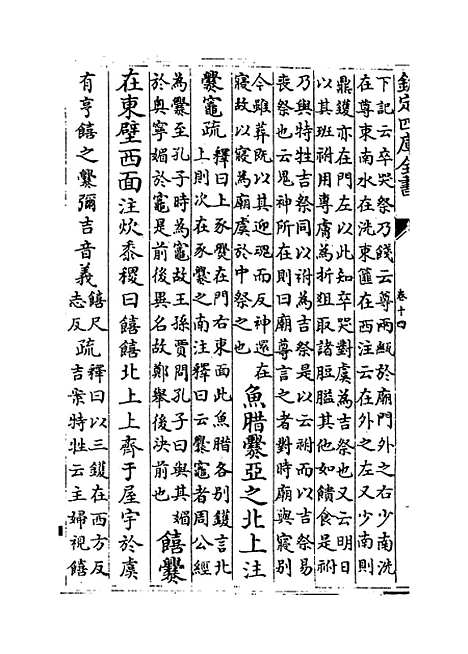 欽定四庫全書
卷十四
下記云卒哭祭乃餞云尊兩甒於廟門外之右少南洗
在尊東南水在洗東篚在西注云在外之左又少南則
鼎鑊亦在門左以此知卒哭對虞為吉祭也又云明日
以其班祔用專膚為折俎取諸脰膉其他如饋食是祔
乃與特牲吉祭同以祔為吉祭是以云祔而以吉祭易
喪祭也云鬼神所在則曰廟尊言之者對時廟與寢别
今雖葬既以其迎魂而反神還在
寢故以寢為廟虞於中祭之也
魚腊爨亞之北上注
爨竈疏
釋曰上豕爨在門右東面此魚腊各别鑊言北
上則次在豕爨之南注釋曰云爨竈者周公經
為爨至孔子時為竈故王孫賈問孔子曰與其媚
於奥寧媚於竈是前後異名故鄭舉後決前也
饎爨
在東壁西面注炊黍稷曰饎饎北上上齊于屋宇於虞
有亨饎之爨彌吉音義
饎尺
志反
疏
釋曰以三鑊在西方反
吉案特牲云主婦視饎